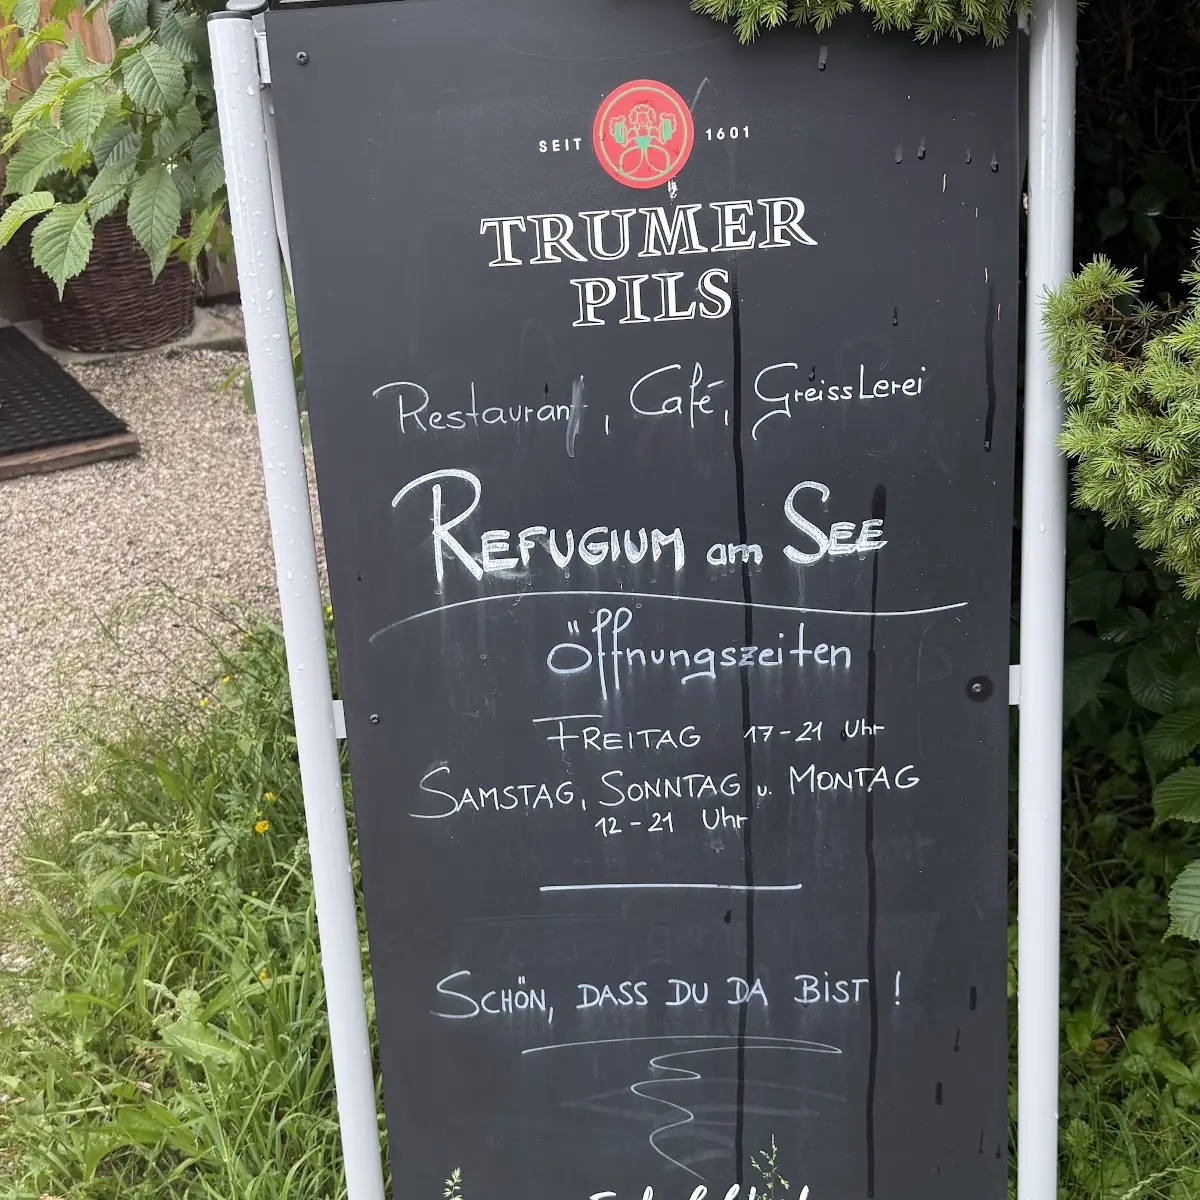 SEIT 1601
TRUMER
PILS
Restaurant, Café, GreissLerei
REFUGIUM am SEE
Öffnungszeiten
FREITAG 17-21 Uhr
SAMSTAG, SONNTAG u. MONTAG
12-21 Uhr
SCHÖN, DASS DU DA BIST !